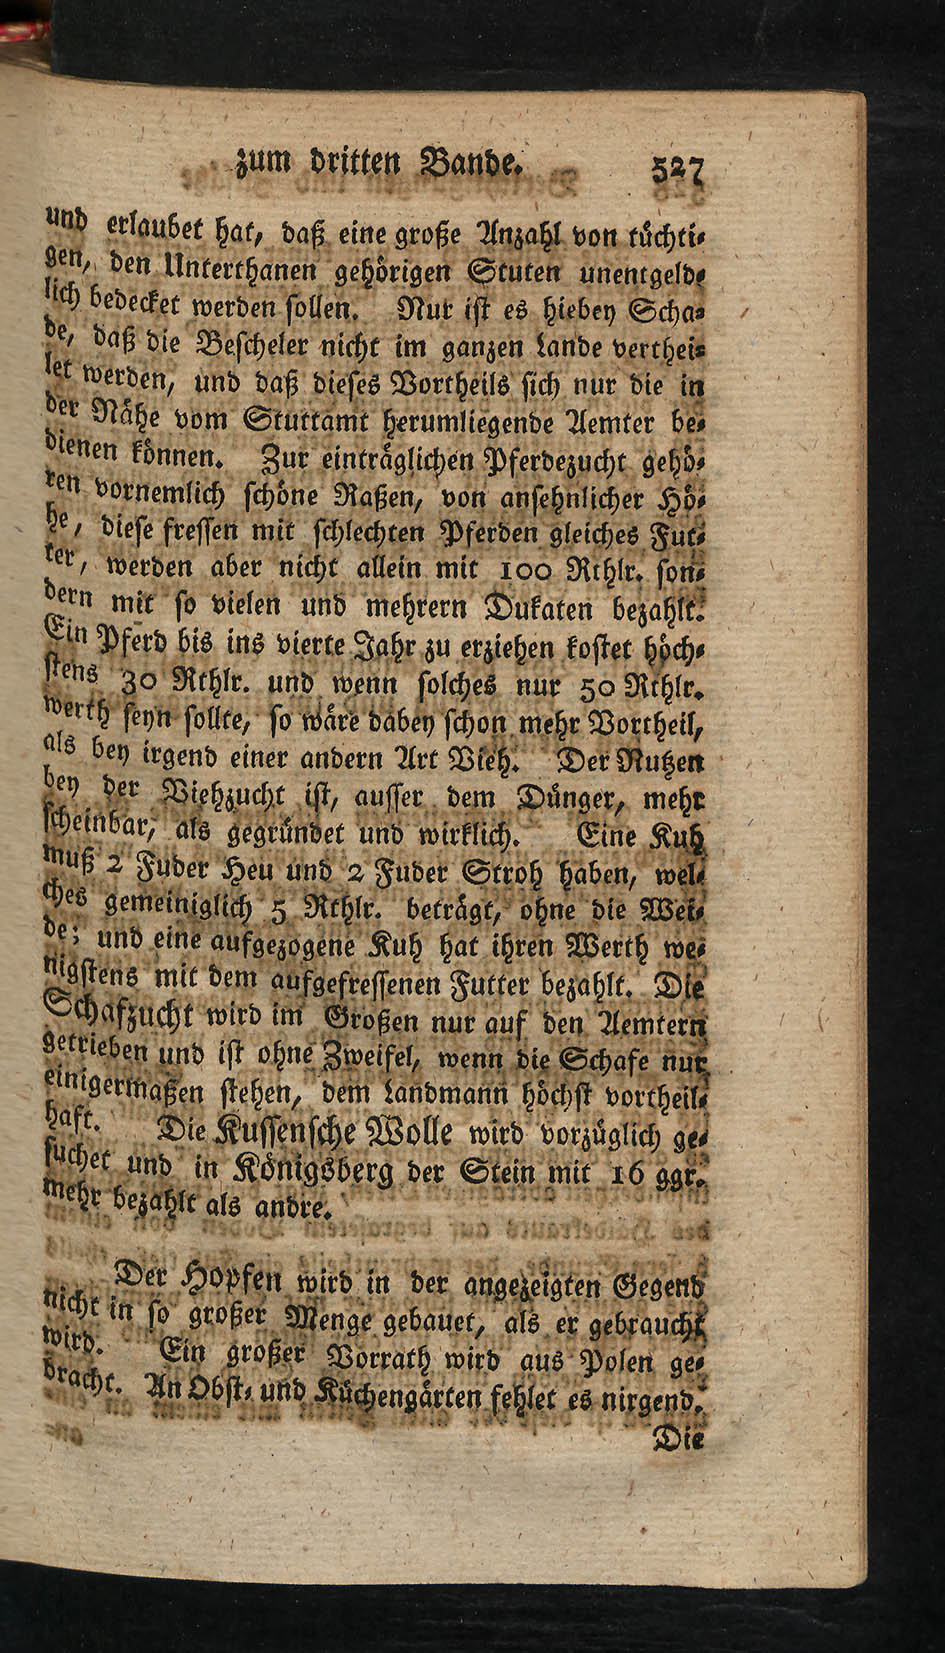 zum dritten Bande. 527
und erlaubet hat, daß eine große Anzahl von tüchti-
gen, den Unterthanen gehörigen Stuten unentgeld-
lich bedecket werden sollen. Nur ist es hiebey Scha-
de, daß die Bescheler nicht im ganzen Lande verthei-
let werden, und daß dieses Vortheils sich nur die in
der Nähe vom Stuttamt herumliegende Aemter be-
dienen können. Zur einträglichen Pferdezucht gehö-
ren vornemlich schöne Raßen, von ansehnlicher Hö-
he, diese fressen mit schlechten Pferden gleiches Fut-
ter, werden aber nicht allein mit 100 Rthlr. son-
dern mit so vielen und mehrern Dukaten bezahlt.
Ein Pferd bis ins vierte Jahr zu erziehen kostet höch-
stens 30 Rthlr. und wenn solches nur 50 Rthlr.
werth seyn sollte, so wäre dabey schon mehr Vortheil,
als bey irgend einer andern Art Vieh. Der Nutzen
bey der Viehzucht ist, ausser dem Dünger, mehr
scheinbar, als gegründet und wirklich. Eine Kuh
muß 2 Fuder Heu und 2 Fuder Stroh haben, wel-
ches gemeiniglich 5 Rthlr. beträgt, ohne die Wei-
de; und eine aufgezogene Kuh hat ihren Werth we-
nigstens mit dem aufgefressenen Futter bezahlt. Die
Schafzucht wird im Großen nur auf den Aemtern
getrieben und ist ohne Zweifel, wenn die Schafe nur
einigermaßen stehen, dem Landmann höchst vortheil-
haft. Die Kussensche Wolle wird vorzüglich ge-
suchet und in Königsberg der Stein mit 16 ggr.
mehr bezahlt als andre.
Der Hopfen wird in der angezeigten Gegend
nicht in so großer Menge gebauet, als er gebraucht
wird. Ein großer Vorrath wird aus Polen ge-
bracht. An Obst- und Küchengärten fehlet es nirgend.
Die